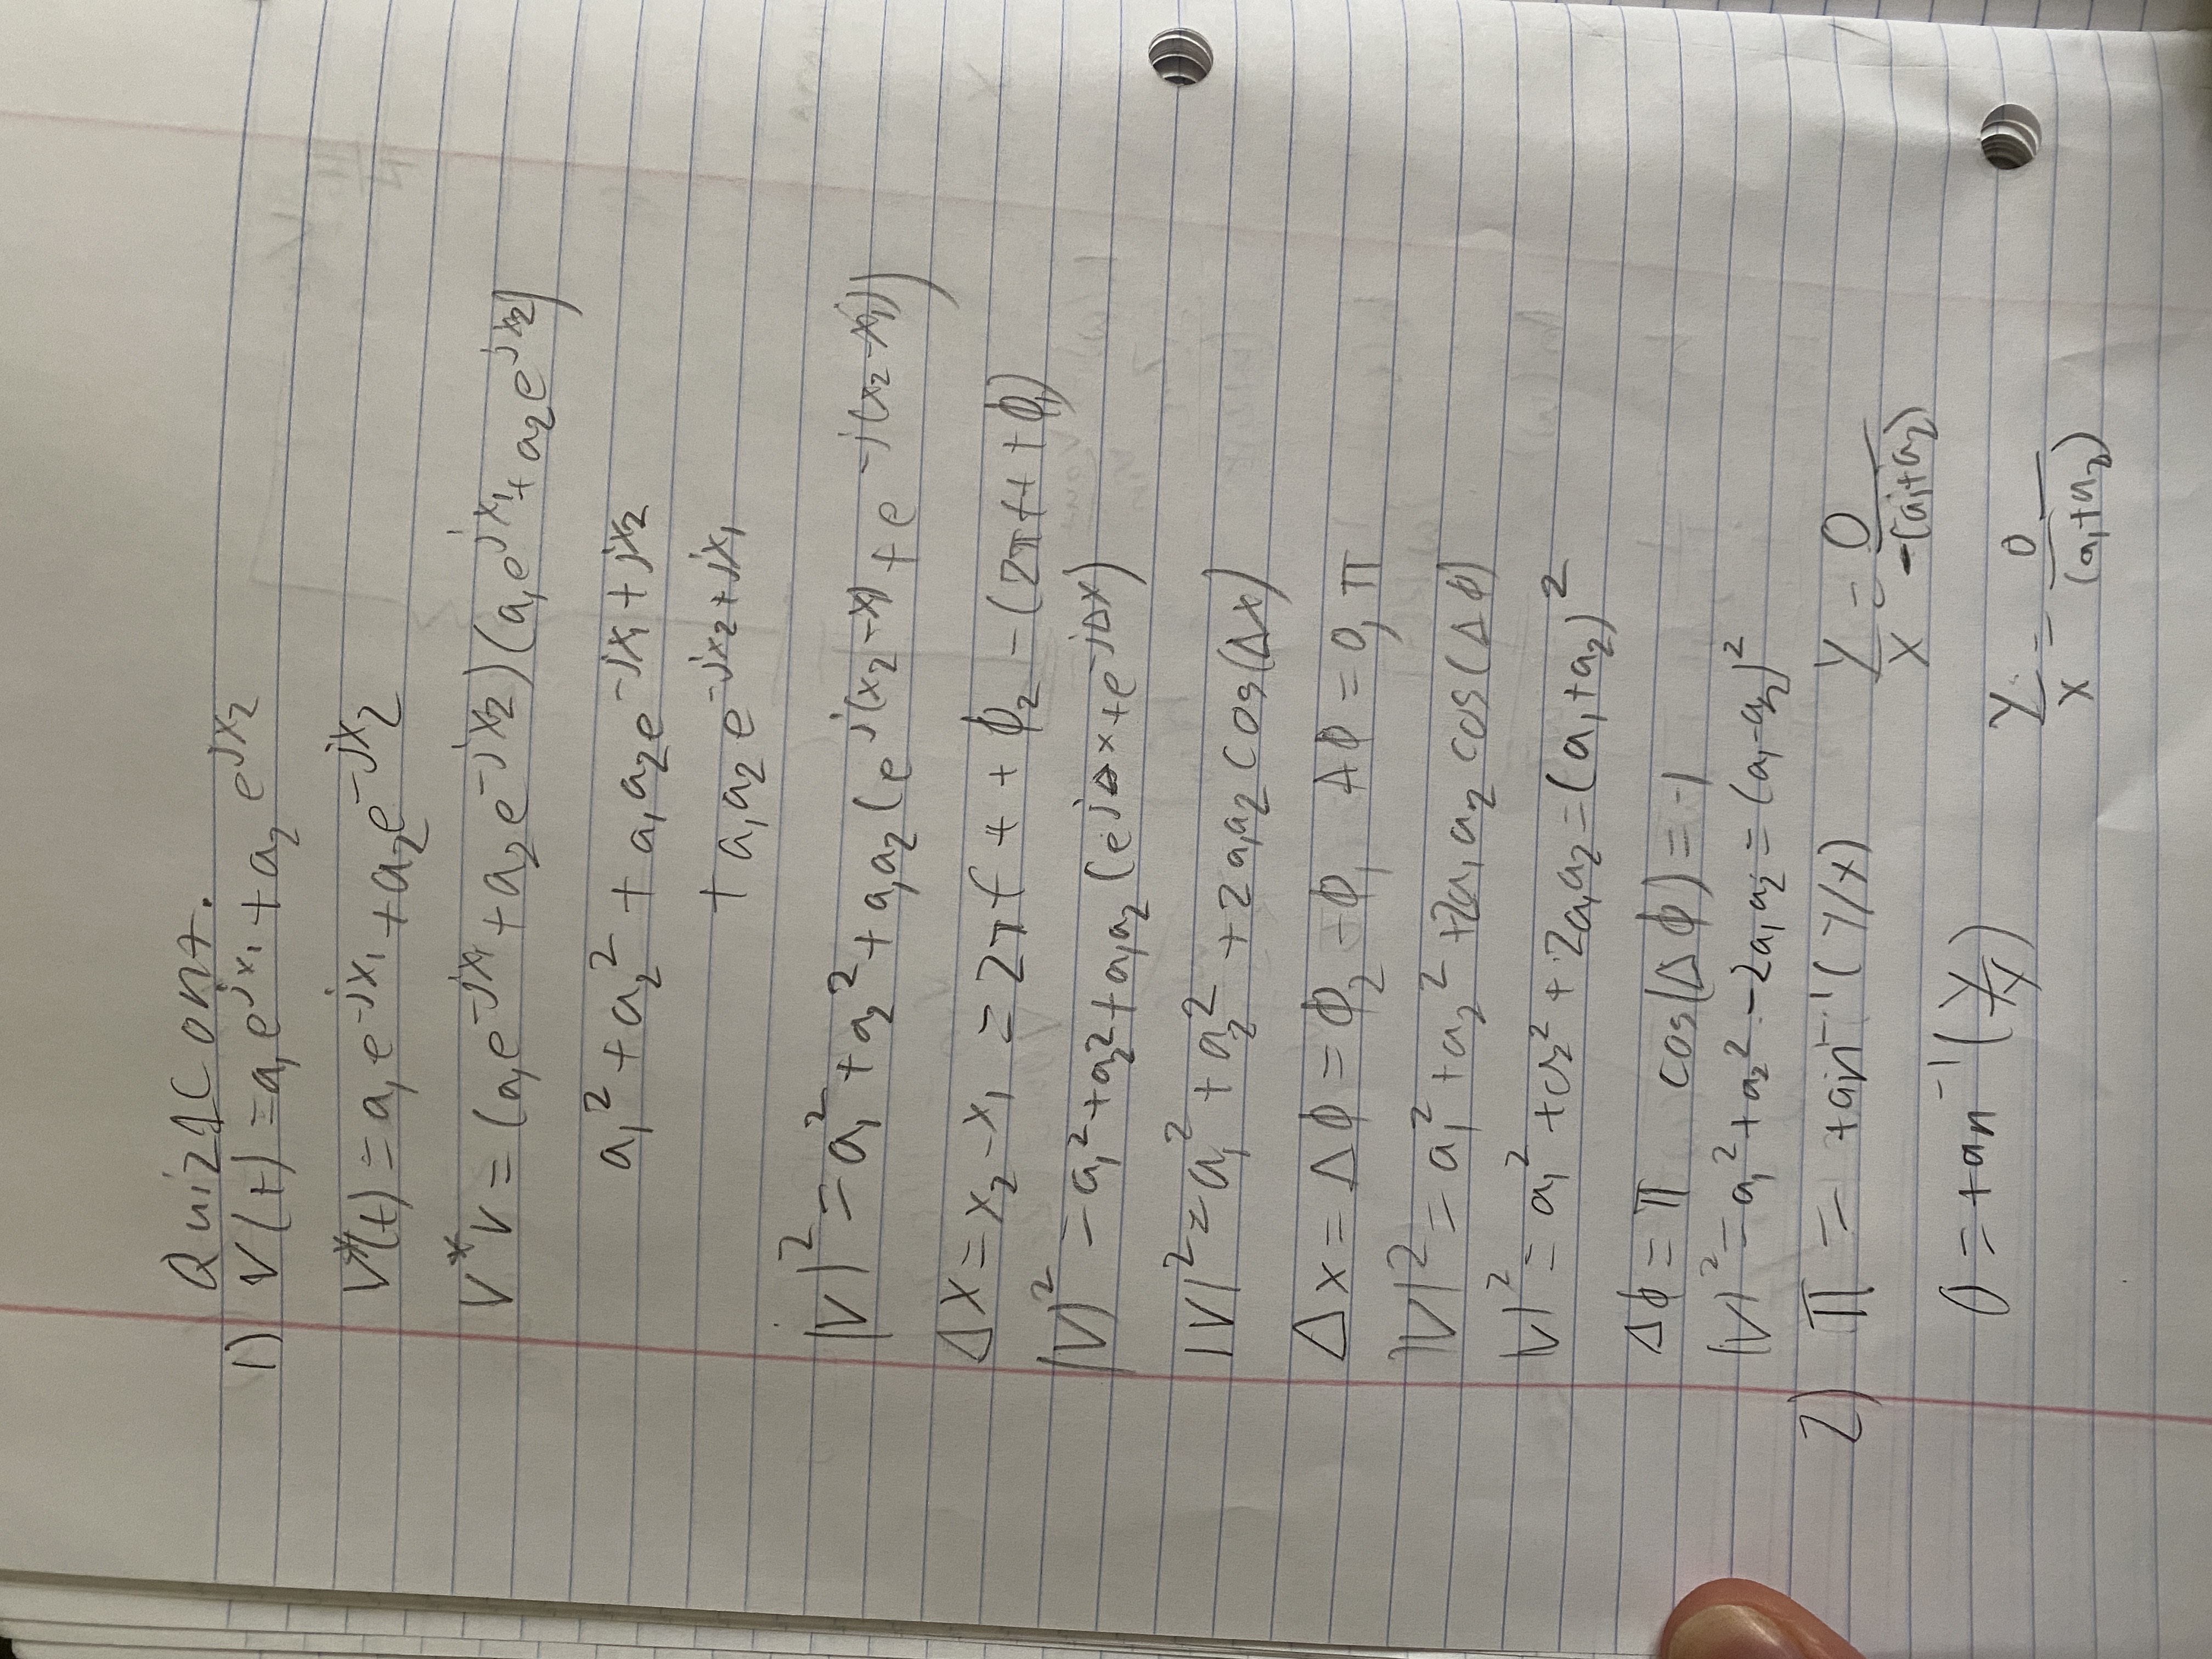 Quiz 1 Cont.
1) V(t) = a₁e^{jx₁} + a₂ e^{jx₂}
V*(t) = a₁e^{-jx₁} + a₂e^{-jx₂}
V*V = (a₁e^{-jx₁} + a₂e^{-jx₂})(a₁e^{jx₁} + a₂e^{jx₂})
a₁² + a₂² + a₁a₂e^{-jx₁+jx₂}
+ a₁a₂e^{-jx₂+jx₁}
|V|² = a₁² + a₂² + a₁a₂(e^{j(x₂-x₁)} + e^{-j(x₂-x₁)})
Δx = x₂ - x₁ = 2πft + ϕ₂ - (2πft + ϕ₁)
|V|² = a₁² + a₂² + a₁a₂(e^{jΔx} + e^{-jΔx})
|V|² = a₁² + a₂² + 2a₁a₂ cos(Δx)
Δx = Δϕ = ϕ₂ - ϕ₁ Δϕ = 0, π
|V|² = a₁² + a₂² + 2a₁a₂ cos(Δϕ)
|V|² = a₁² + a₂² + 2a₁a₂ = (a₁+a₂)²
Δϕ = π cos(Δϕ) = -1
|V|² = a₁² + a₂² - 2a₁a₂ = (a₁-a₂)²
2) π = tan⁻¹(y/x) y/x = 0/-(a₁+a₂)
0 = tan⁻¹(y/x) y/x = 0/(a₁+a₂)